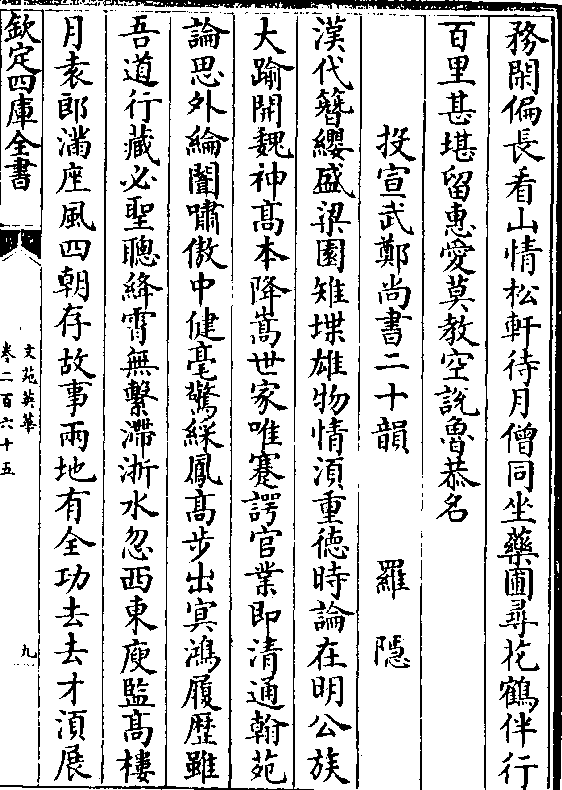 務閑偏長看山情松軒待月僧同坐藥圃尋花鶴伴行
百里甚堪留惠愛莫教空説魯恭名
投宣武鄭尚書二十韻　羅隱
漢代簪纓盛梁園雉堞雄物情湏重徳時論在明公族
大踰開魏神髙本降嵩世家唯蹇諤官業即清通翰苑
論思外綸闈嘯傲中健毫驚綵鳳髙步出㝠鴻履歴雖
吾道行藏必聖聰絳霄無繫滯浙水忽西東庾監髙樓
月袁郎滿座風四朝存故事兩地有全功去去才湏展
欽定四庫全書
文苑英華
卷二百六十五
九